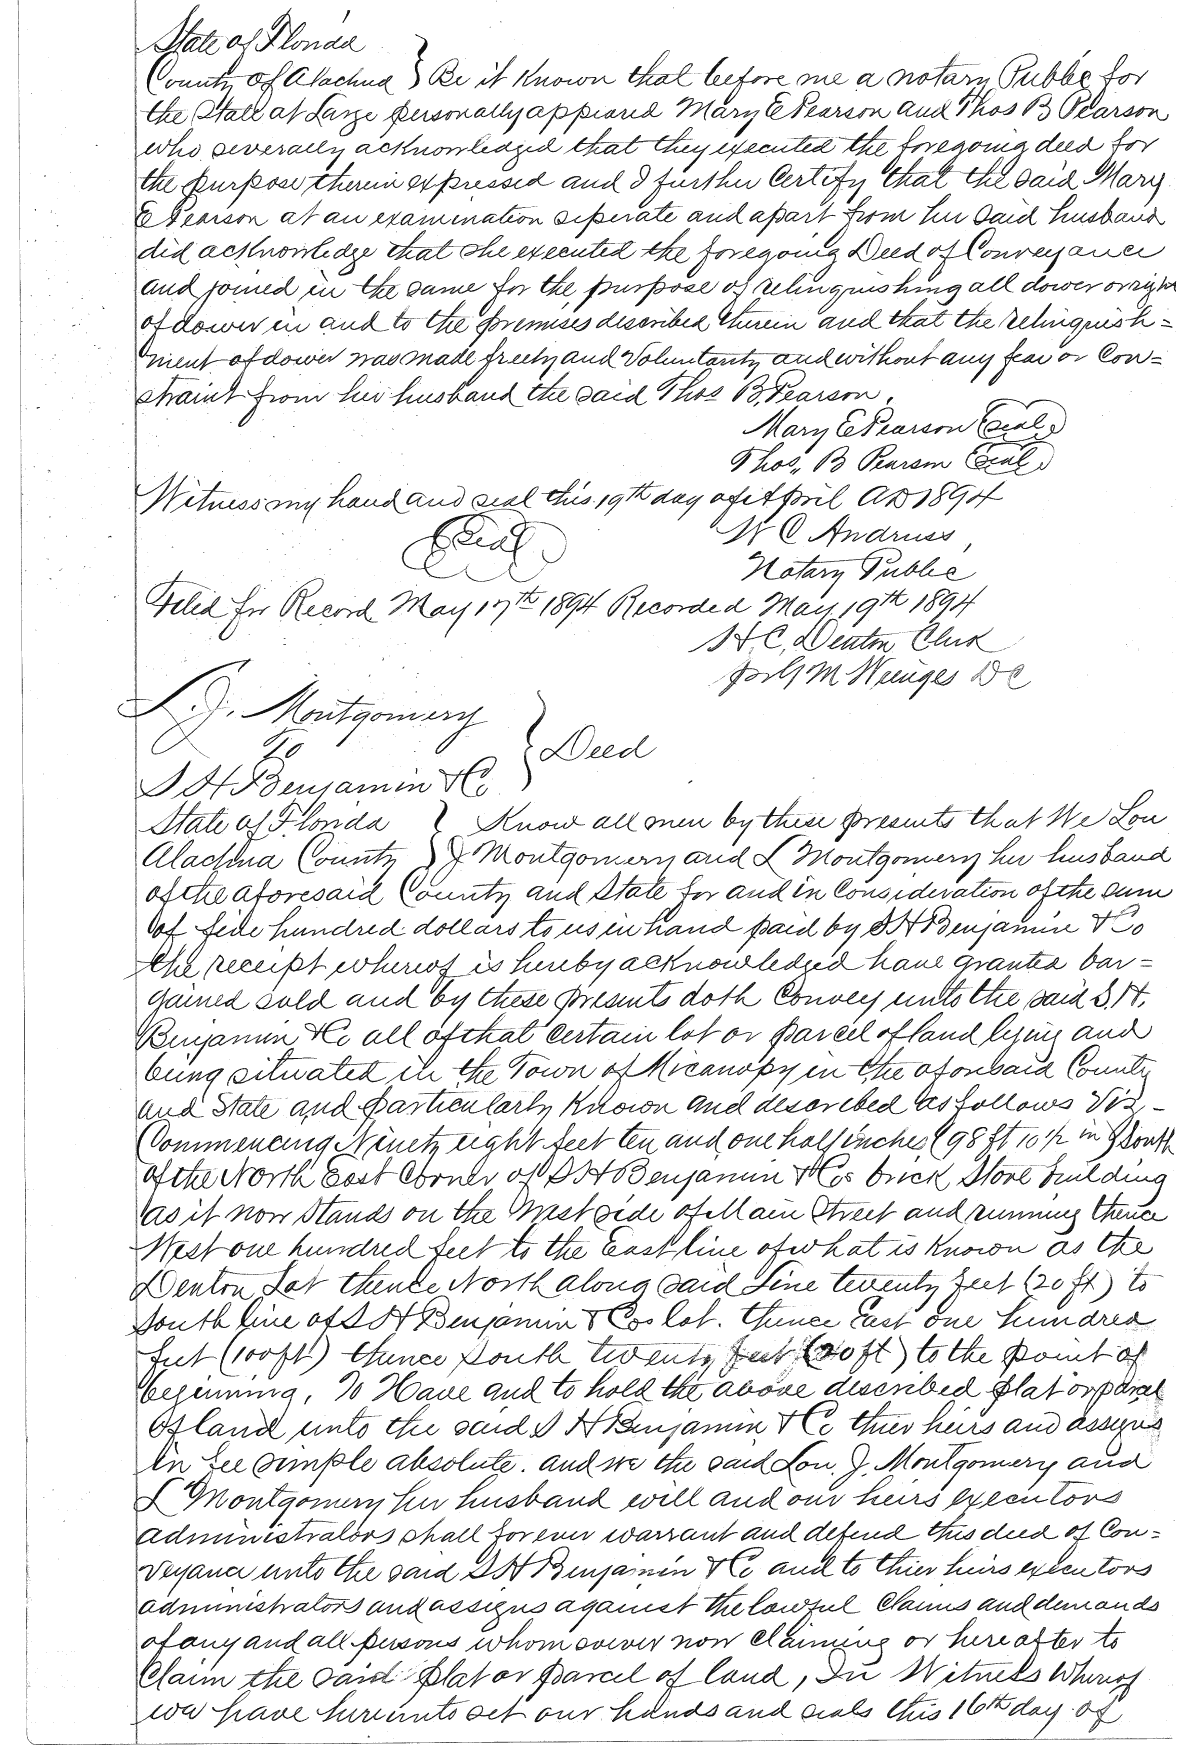 State of Florida
County of Alachua } Be it Known that before me a notary Public for
the State at Large personally appeared Mary E Pearson and Thos B Pearson
who severally acknowledged that they executed the foregoing deed for
the purpose therein expressed and I further Certify that the said Mary
E Pearson at an examination seperate and apart from her said husband
did acknowledge that she executed the foregoing Deed of Conveyance
and joined in the same for the purpose of relinquishing all dower or right
of dower in and to the premises described therein and that the relinquish=
ment of dower was made freely and Voluntarily and without any fear or Con=
straint from her husband the said Thos B. Pearson.
Mary E Pearson Seal
Thos. B Pearson Seal
Witness my hand and seal this 19th day of April AD 1894
Seal
W C Andruss
Notary Public
Filed for Record May 17th 1894 Recorded May 19th 1894
H. C. Denton Clerk
per G M Wienges DC
L. J. Montgomery
To } Deed
S H Benjamin & Co
State of Florida } Know all men by these presents that We Lou
Alachua County } J Montgomery and L Montgomery her husband
of the aforesaid County and State for and in Consideration of the sum
of five hundred dollars to us in hand paid by S H Benjamin & Co
the receipt whereof is hereby acknowledged have granted bar=
gained sold and by these presents doth Convey unto the said S. H.
Benjamin & Co all of that certain lot or parcel of land lying and
being situated in the Town of Micanopy in the aforesaid County
and State and particularly Known and described as follows Viz-
Commencing Ninety eight feet ten and one half inches (98 ft 10 1/2 in) South
of the North East Corner of S H Benjamin & Cos brick Store building
as it now stands on the West side of Main Street and running thence
West one hundred feet to the East line of what is Known as the
Denton Lot thence North along said Line twenty feet (20 ft) to
South line of S H Benjamin & Cos lot. thence East one hundred
feet (100 ft) thence South twenty feet (20 ft) to the point of
beginning. To Have and to hold the above described plat or parcel
of land unto the said S H Benjamin & Co thier heirs and assigns
in fee simple absolute. and we the said Lou. J. Montgomery and
L Montgomery her husband will and our heirs executors
administrators shall forever warrant and defend this deed of Con=
veyance unto the said S H Benjamin & Co and to thier heirs executors
administrators and assigns against the lawful Claims and demands
of any and all persons whomsoever now Claiming or hereafter to
Claim the said plat or parcel of land, In Witness Whereof
we have hereunto set our hands and seals this 16th day of